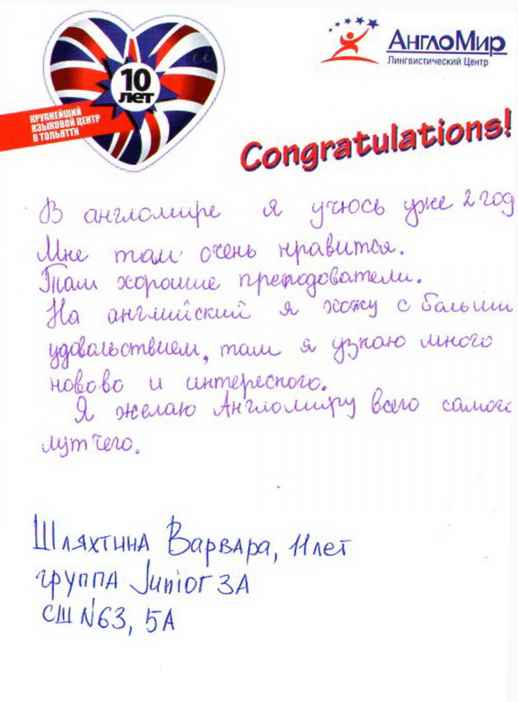 10
лет
КРУПНЕЙШИЙ
ЯЗЫКОВОЙ ЦЕНТР
В ТОЛЬЯТТИ
АнглоМир
Лингвистический Центр
Congratulations!
В англомире я учюсь уже 2 год
Мне там очень нравится.
Там хорошие преподователи.
На английский я хожу с большим
удовольствием, там я узнаю много
нововo и интересного.
Я желаю Англомиру всего самог
лутчего.
Шляхтина Варвара, 11 лет
группа Junior 3A
СШ №63, 5А